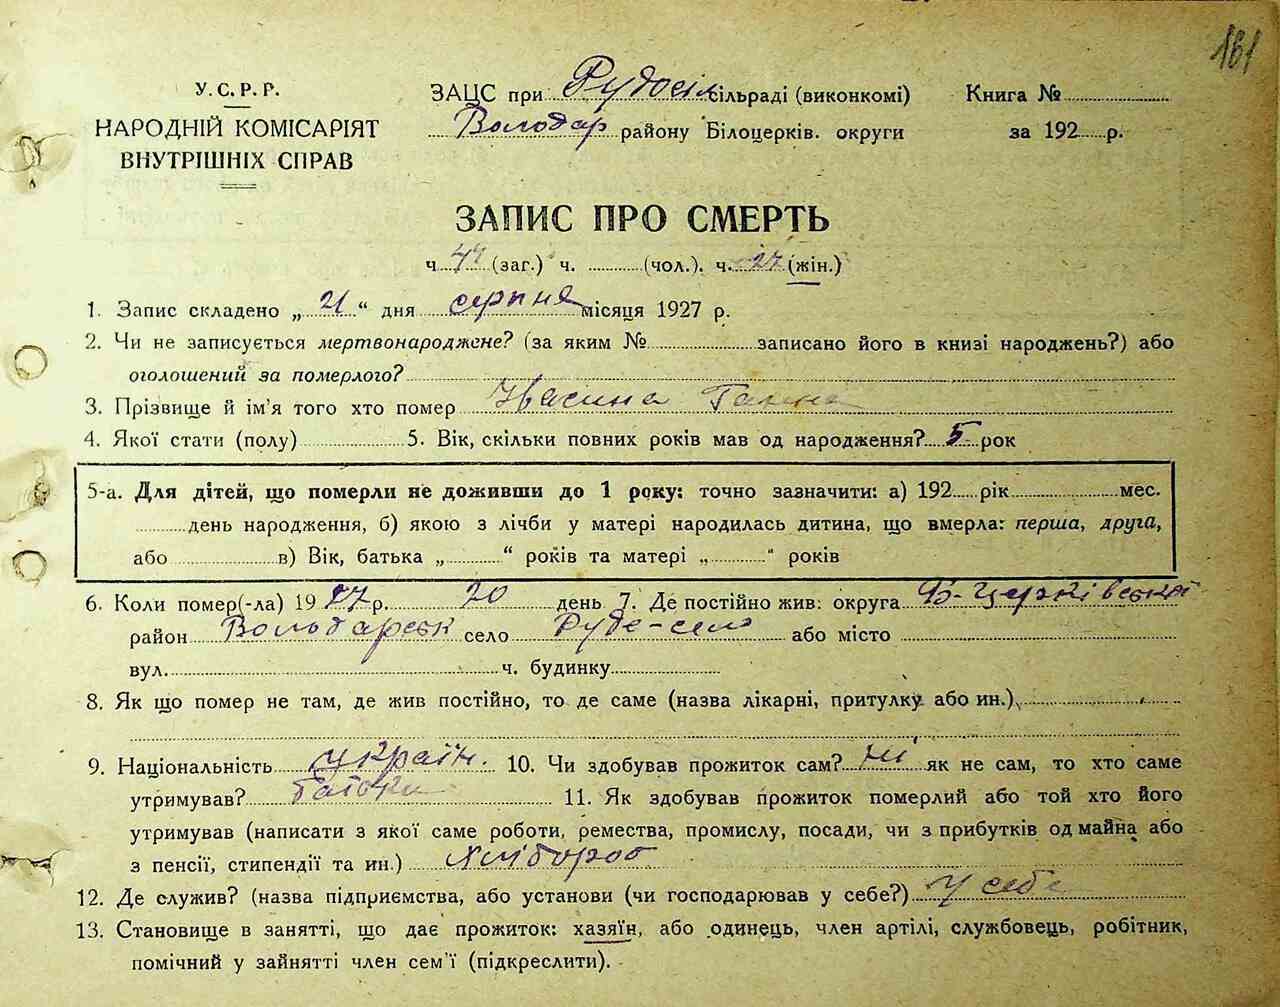 161
У.С.Р.Р.
НАРОДНІЙ КОМІСАРІЯТ
ВНУТРІШНІХ СПРАВ
ЗАЦС при Рудосіл сільраді (виконкомі)
Володар району Білоцерків. округи
Книга №
за 192 р.
ЗАПИС ПРО СМЕРТЬ
ч. (заг.) ч. (чол.). ч. 27 (жін.)
1. Запис складено „21“ дня серпня місяця 1927 р.
2. Чи не записується мертвонароджене? (за яким № записано його в книзі народжень?) або
оголошений за померлого?
3. Прізвище й ім'я того хто помер Ганна
4. Якої стати (полу) 5. Вік, скільки повних років мав од народження? 5 рок
5-а. Для дітей, що померли не доживши до 1 року: точно зазначити: а) 192 рік мес.
день народження, б) якою з лічби у матері народилась дитина, що вмерла: перша, друга,
або в) Вік, батька „ “ років та матері „ “ років
6. Коли помер(-ла) 1927 р. 20 день 7. Де постійно жив: округа Б-Церківська
район Володарськ село Руде-село або місто
вул. ч. будинку
8. Як що помер не там, де жив постійно, то де саме (назва лікарні, притулку або ин.)
9. Національність україн. 10. Чи здобував прожиток сам? Ні як не сам, то хто саме
утримував? Батьки 11. Як здобував прожиток померлий або той хто його
утримував (написати з якої саме роботи, ремества, промислу, посади, чи з прибутків од майна або
з пенсії, стипендії та ин.) Хлібороб
12. Де служив? (назва підприємства, або установи (чи господарював у себе?) у себе
13. Становище в занятті, що дає прожиток: хазяїн, або одинець, член артілі, службовець, робітник,
помічний у зайнятті член сем'ї (підкреслити).